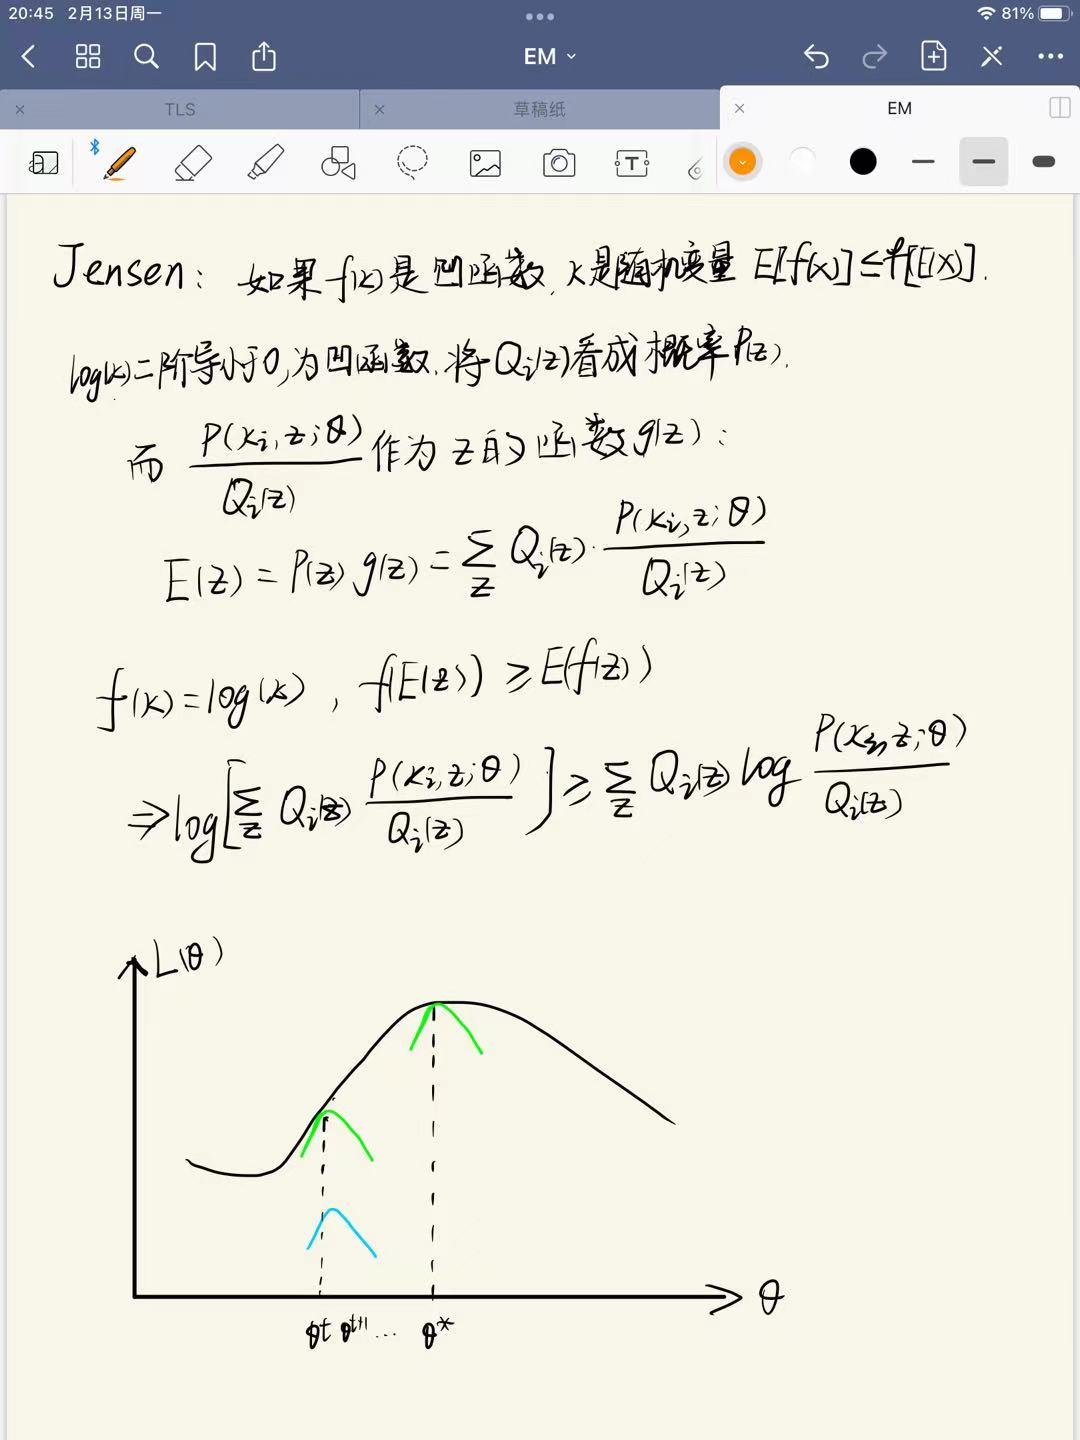 20:45 2月13日周一
81%
EM
TLS
草稿纸
EM
Jensen: 如果 f(x) 是凹函数, X是随机变量 E[f(x)]≤f[E(X)].
log(x)二阶导小于0,为凹函数. 将Qi(z)看成概率P(z).
而 P(xi,z;θ)/Qi(z) 作为 z 的函数 g(z):
E(z) = P(z) g(z) = ∑z Qi(z)· P(xi,z;θ)/Qi(z)
f(x)=log(x), f(E(z)) ≥ E(f(z))
⇒log[∑z Qi(z) P(xi,z;θ)/Qi(z)] ≥ ∑z Qi(z) log P(xi,z;θ)/Qi(z)
L(θ)
θ
θ^t θ^t+1 ... θ*